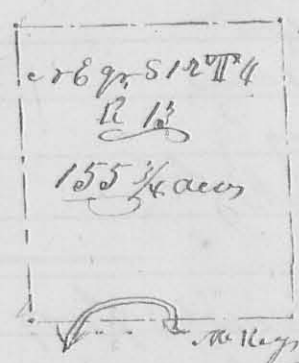 N E qr S 12 T 4
R 13
155 3/4 acres
McKeys